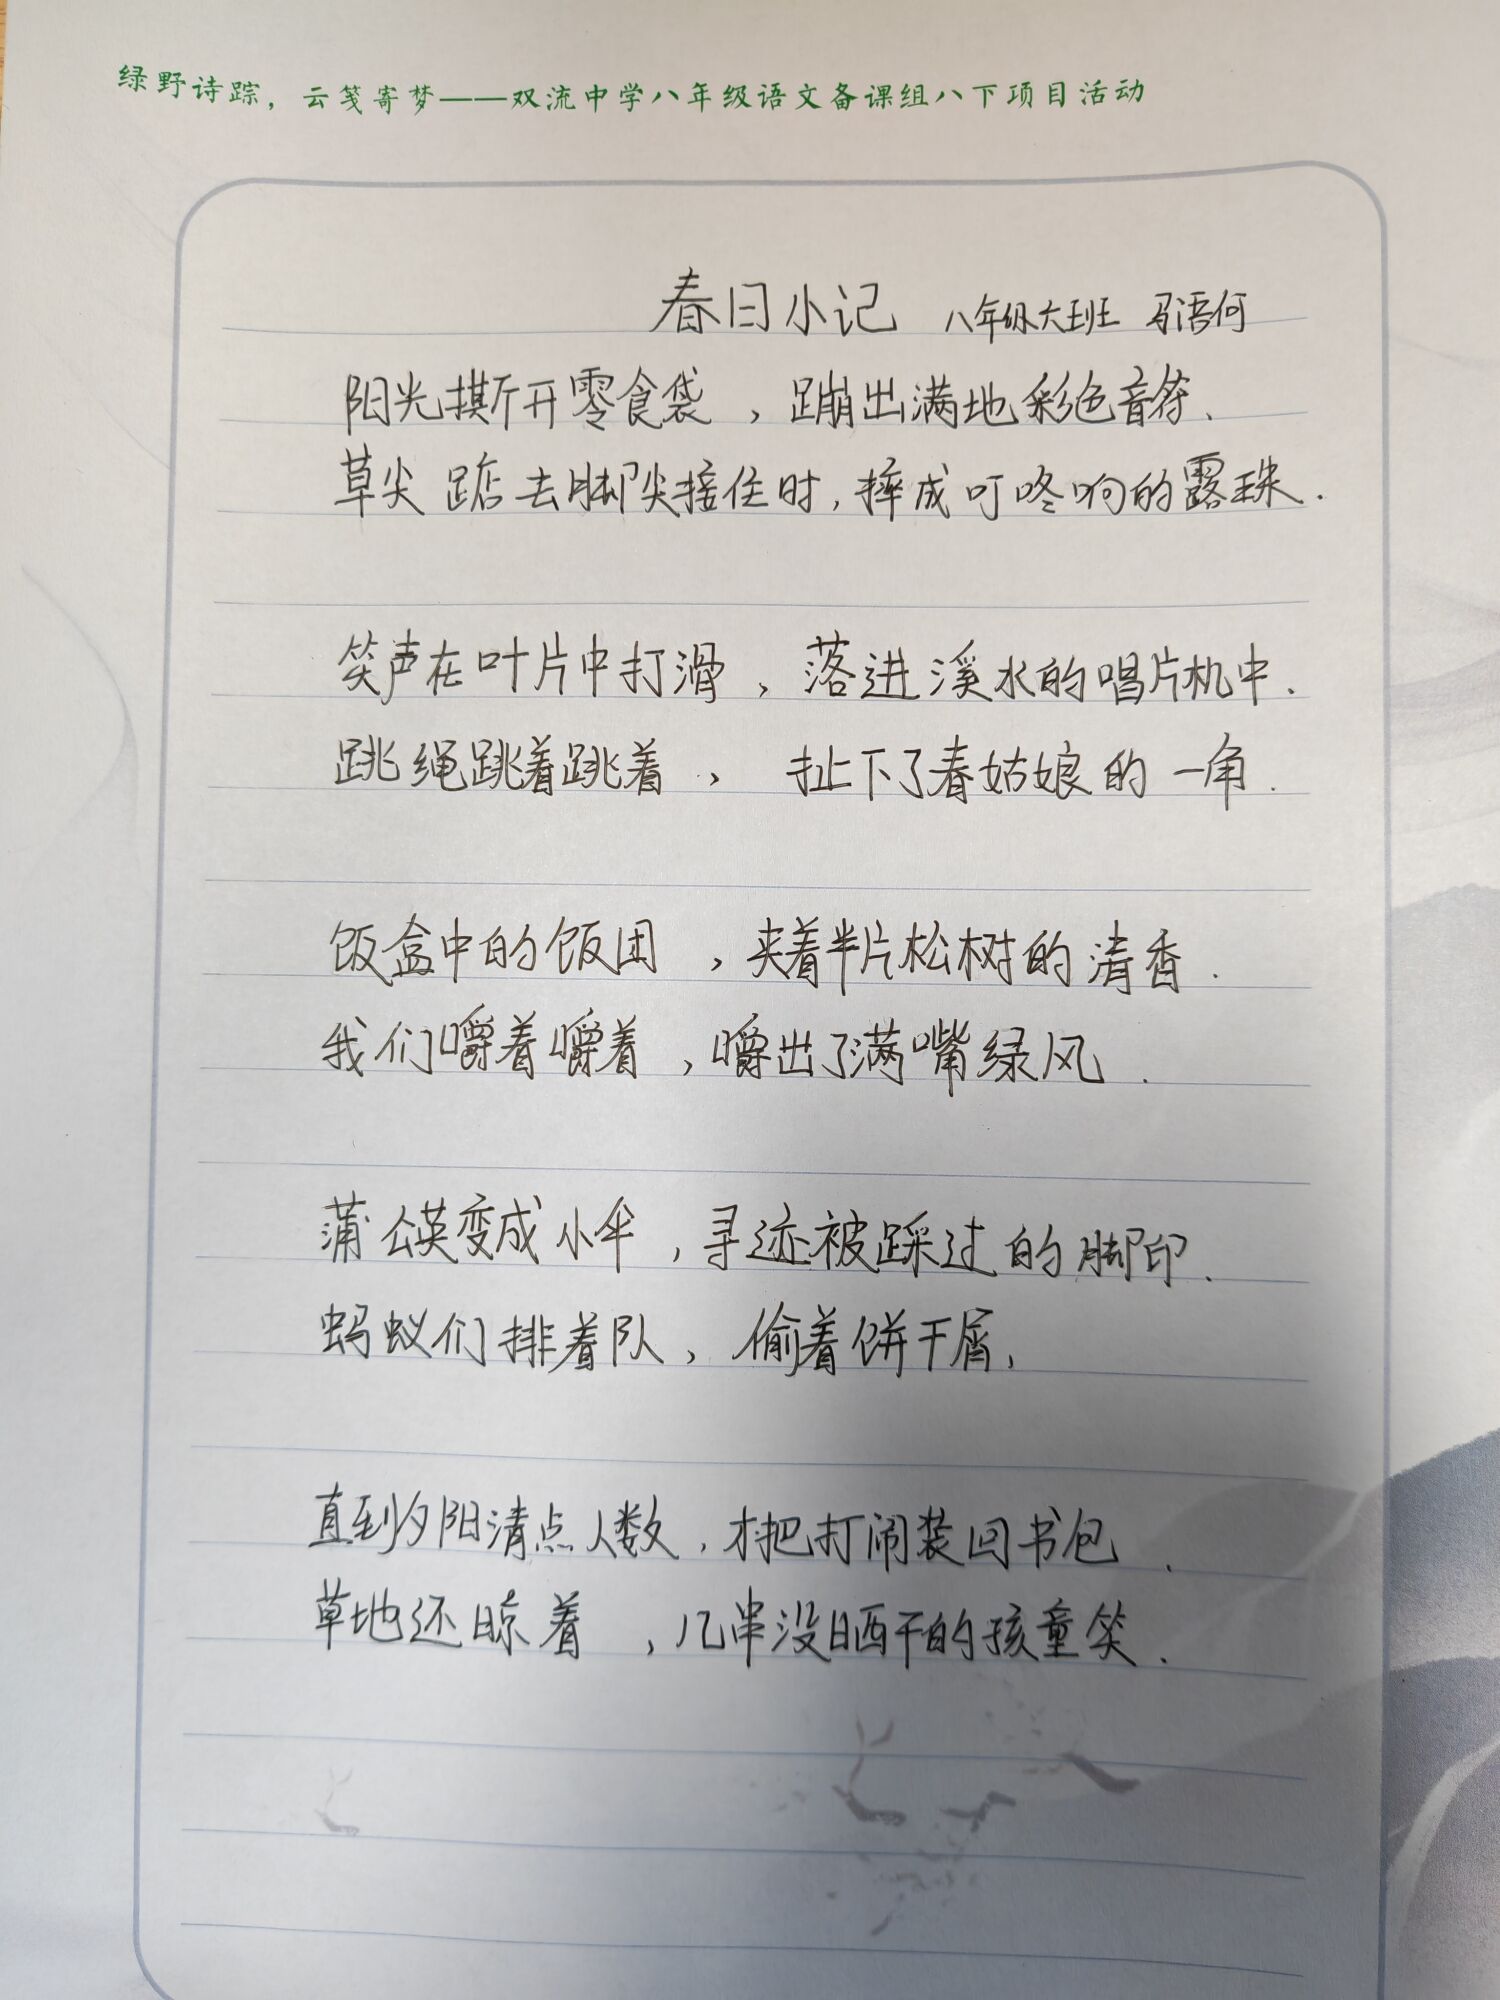 绿野诗踪，云笺寄梦——双流中学八年级语文备课组八下项目活动
春日小记 八年级六班 马语何
阳光撕开零食袋，蹦出满地彩色音符.
草尖踮去脚尖接住时，摔成叮咚响的露珠.
笑声在叶片中打滑，落进溪水的唱片机中.
跳绳跳着跳着，扯下了春姑娘的一角.
饭盒中的饭团，夹着半片松树的清香.
我们嚼着嚼着，嚼出了满嘴绿风.
蒲公英变成小伞，寻迹被踩过的脚印.
蚂蚁们排着队，偷着饼干屑，
直到夕阳清点人数，才把打闹装回书包.
草地还晾着，几串没晒干的孩童笑.